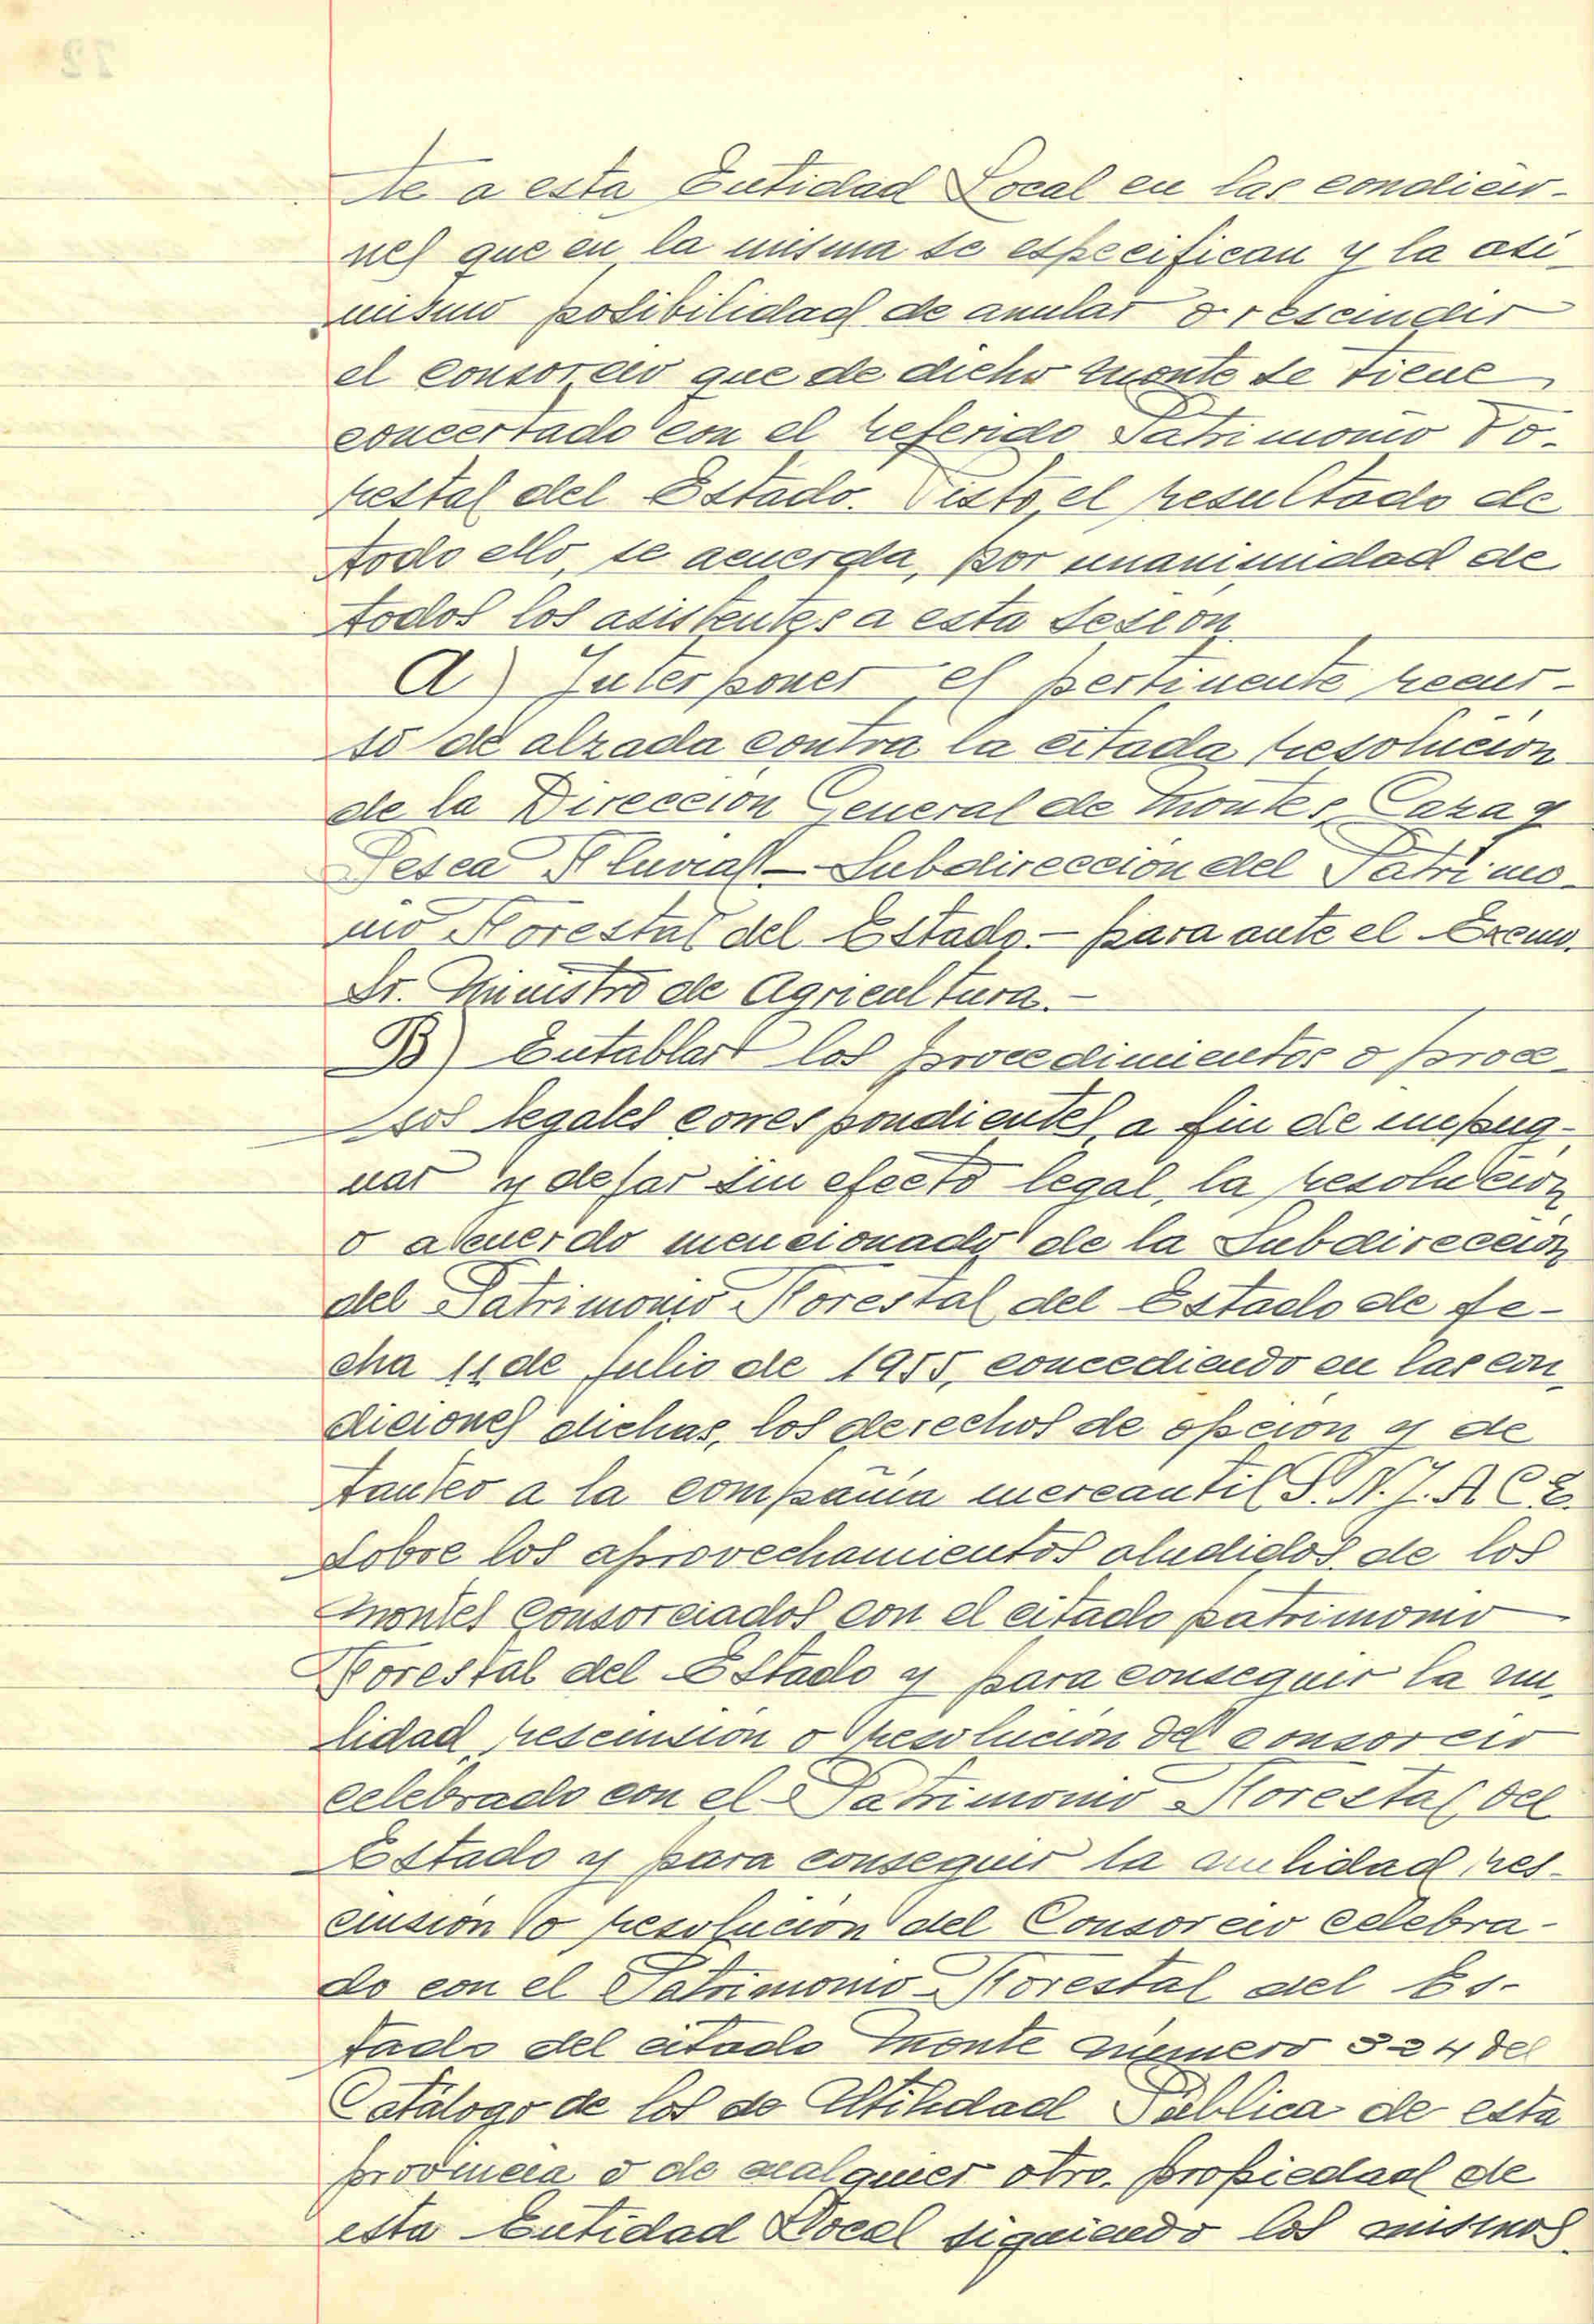 te a esta Entidad Local en las condicio-
nes que en la misma se especifican y la asi-
mismo posibilidad de anular o rescindir
el consorcio que de dicho monte se tiene
concertado con el referido Patrimonio Fo-
restal del Estado. Visto, el resultado de
todo ello, se acuerda, por unanimidad de
todos los asistentes a esta sesión
A) Interponer el pertinente recur-
so de alzada contra la citada resolución
de la Dirección General de Montes, Caza y
Pesca Fluvial - Subdirección del Patrimo-
nio Forestal del Estado.- para ante el Excmo.
Sr. Ministro de Agricultura.-
B) Entablar los procedimientos o proce-
sos legales correspondientes, a fin de impug-
nar y dejar sin efecto legal, la resolución
o acuerdo mencionado de la Subdirección
del Patrimonio Forestal del Estado de fe-
cha 11 de Julio de 1955, concediendo en las con-
diciones dichas, los derechos de opción y de
tanteo a la compañía mercantil S.N.I.A.C.E.
sobre los aprovechamientos aludidos de los
montes consorciados con el citado patrimonio
Forestal del Estado y para conseguir la nu-
lidad, rescinsión o resolución del consorcio
celebrado con el Patrimonio Forestal del
Estado y para conseguir la nulidad, res-
cinsión o resolución del Consorcio celebra-
do con el Patrimonio Forestal del Es-
tado del citado monte número 324 del
Catálogo de los de Utilidad Pública de esta
provincia o de cualquier otro. propiedad de
esta Entidad Local siguiendo los mismos